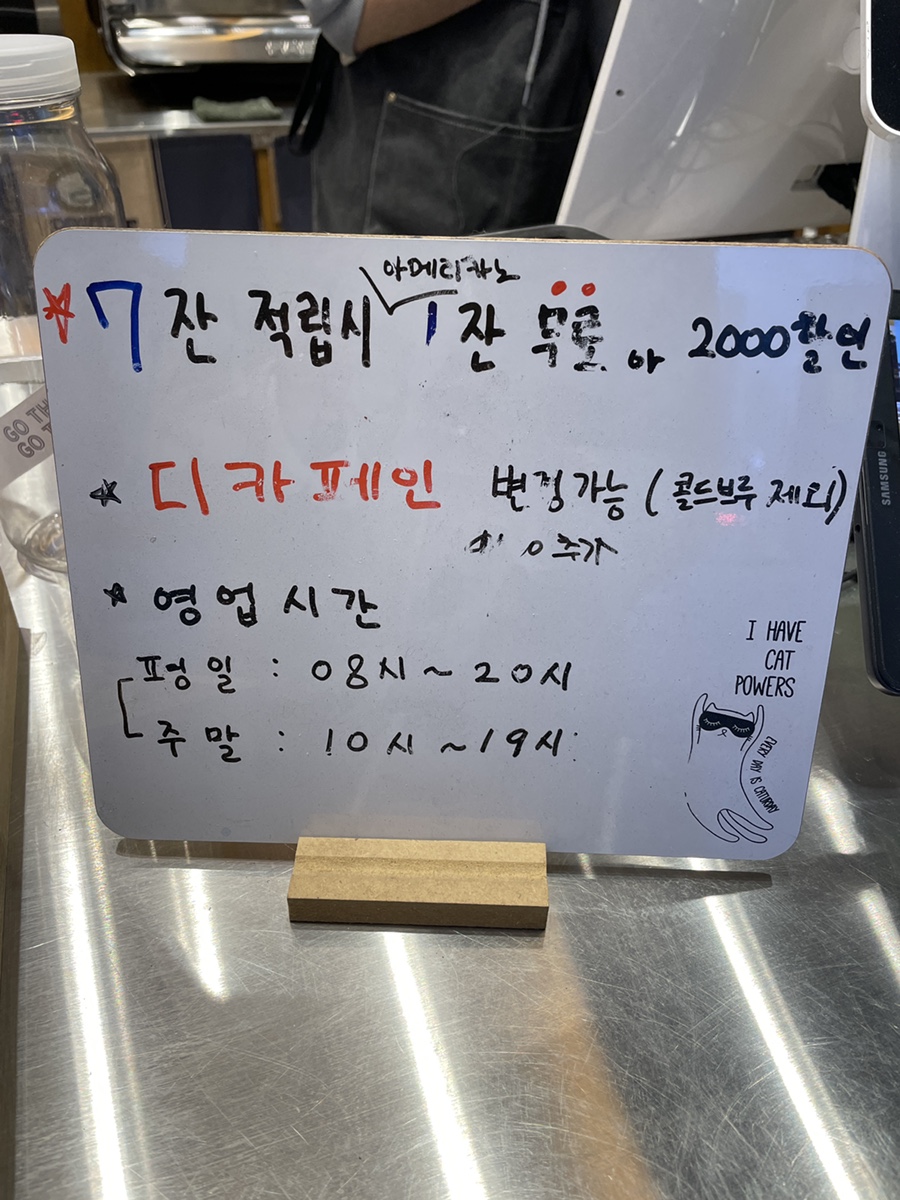 아메리카노
7잔 적립시 1잔 무료 2000할인
디카페인 변경가능 (콜드브루 제외)
추가
영업시간
평일 : 08시~20시
주말 : 10시~19시
I HAVE
CAT
POWERS
EVERY DAY IS CATURDAY
SAMSUNG
GO TH
GO T